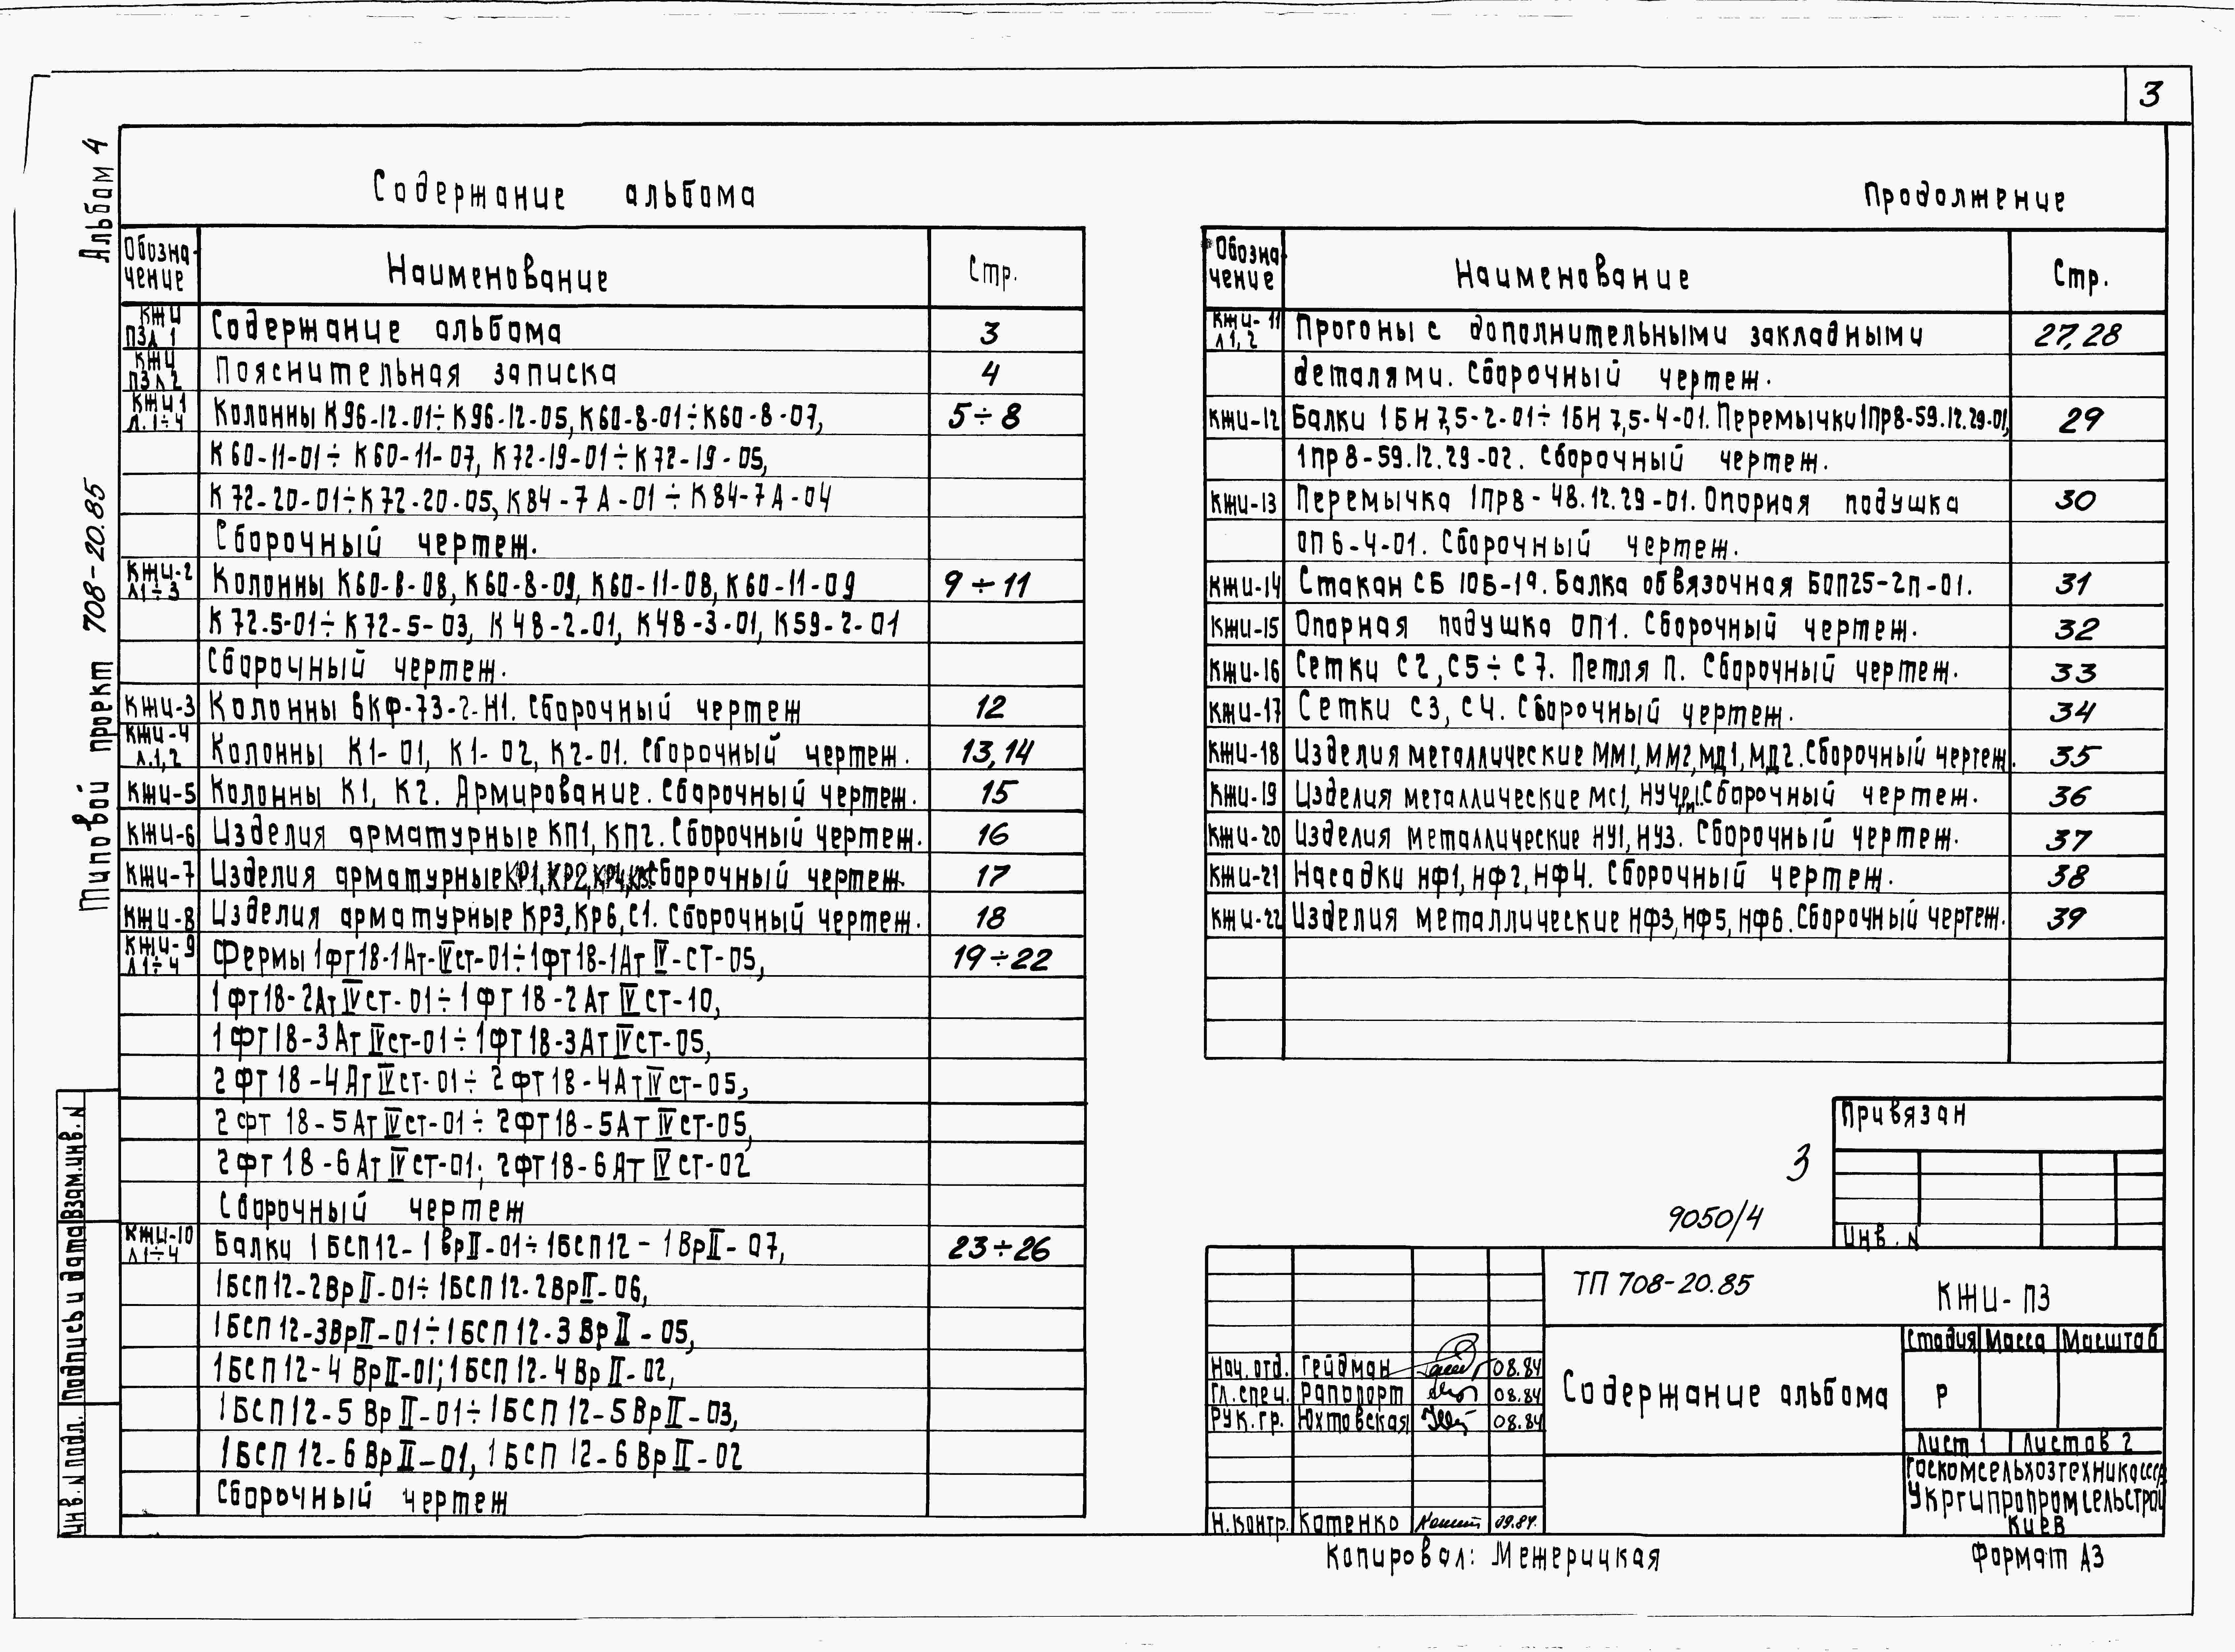 3
Альбом 4
Типовой проект 708-20.85
Содержание альбома
Обозна-
чение
Наименование
Стр.
КЖИ
ПЗл 1
Содержание альбома
3
КЖИ
ПЗ л 2
Пояснительная записка
4
КЖИ 1
Л. 1÷4
Колонны К96-12-01÷К96-12-05, К60-8-01÷К60-8-07,
5÷8
К60-11-01÷К60-11-07, К72-19-01÷К72-19-05,
К72-20-01÷К72-20-05, К84-7А-01÷К84-7А-04
Сборочный чертеж.
КЖИ-2
л1÷3
Колонны К60-8-08, К60-8-09, К60-11-08, К60-11-09
9÷11
К72.5-01÷К72-5-03, К48-2-01, К48-3-01, К59-2-01
Сборочный чертеж.
КЖИ-3
Колонны 6КФ-73-2-Н1. Сборочный чертеж
12
КЖИ-4
л.1,2
Колонны К1-01, К1-02, К2-01. Сборочный чертеж.
13,14
КЖИ-5
Колонны К1, К2. Армирование. Сборочный чертеж.
15
КЖИ-6
Изделия арматурные КП1, КП2. Сборочный чертеж.
16
КЖИ-7
Изделия арматурные КР1, КР2, КР4, Сборочный чертеж.
17
КЖИ-8
Изделия арматурные КР3, КР6, С1. Сборочный чертеж.
18
КЖИ-9
л1÷4
Фермы 1ФТ18-1Ат-IVст-01÷1ФТ18-1Ат IV-СТ-05,
19÷22
1ФТ18-2Ат IV СТ-01÷1ФТ18-2Ат IV СТ-10,
1ФТ18-3Ат IV СТ-01÷1ФТ18-3Ат IV СТ-05,
2ФТ18-4Ат IV СТ-01÷2ФТ18-4Ат IV СТ-05,
2ФТ18-5Ат IV СТ-01÷2ФТ18-5Ат IV СТ-05,
2ФТ18-6Ат IV СТ-01; 2ФТ18-6Ат IV СТ-02
Сборочный чертеж
КЖИ-10
л1÷4
Балки 1БСП12-1ВрII-01÷1БСП12-1ВрII-07,
23÷26
1БСП12-2ВрII-01÷1БСП12-2ВрII-06,
1БСП12-3ВрII-01÷1БСП12-3ВрII-05,
1БСП12-4ВрII-01; 1БСП12-4ВрII-02,
1БСП12-5ВрII-01÷1БСП12-5ВрII-03,
1БСП12-6ВрII-01, 1БСП12-6ВрII-02
Сборочный чертеж
Продолжение
Обозна-
чение
Наименование
Стр.
КЖИ-11
л1,2
Прогоны с дополнительными закладными
27,28
деталями. Сборочный чертеж.
КЖИ-12
Балки 1БН7,5-2-01÷1БН7,5-4-01. Перемычки 1ПР8-59.12.29-01,
29
1ПР8-59.12.29-02. Сборочный чертеж.
КЖИ-13
Перемычка 1ПР8-48.12.29-01. Опорная подушка
30
ОП6-4-01. Сборочный чертеж.
КЖИ-14
Стакан СБ 10Б-19. Балка обвязочная БОП25-2П-01.
31
КЖИ-15
Опорная подушка ОП1. Сборочный чертеж.
32
КЖИ-16
Сетки С2, С5÷С7. Петля П. Сборочный чертеж.
33
КЖИ-17
Сетки С3, С4. Сборочный чертеж.
34
КЖИ-18
Изделия металлические ММ1, ММ2, МД1, МД2. Сборочный чертеж.
35
КЖИ-19
Изделия металлические МС1, Сборочный чертеж.
36
КЖИ-20
Изделия металлические НУ1, НУ3. Сборочный чертеж.
37
КЖИ-21
Насадки НФ1, НФ2, НФ4. Сборочный чертеж.
38
КЖИ-22
Изделия металлические НФ3, НФ5, НФ6. Сборочный чертеж.
39
Привязан
Инв. N
3
9050/4
ТП 708-20.85
КЖИ-ПЗ
Содержание альбома
Стадия Масса Масштаб
Р
Лист 1 Листов 2
Госкомсельхозтехника СССР
Укргипропромсельстрой
Киев
Нач. отд. Гейдман 08.84
Гл. спец. Рапопорт 08.84
Рук. гр. Юхтовская 08.84
Н. контр. Катенко 09.84.
Копировал: Межерицкая
Формат А3
Взам. инв. N
Подпись и дата
Инв. N подл.